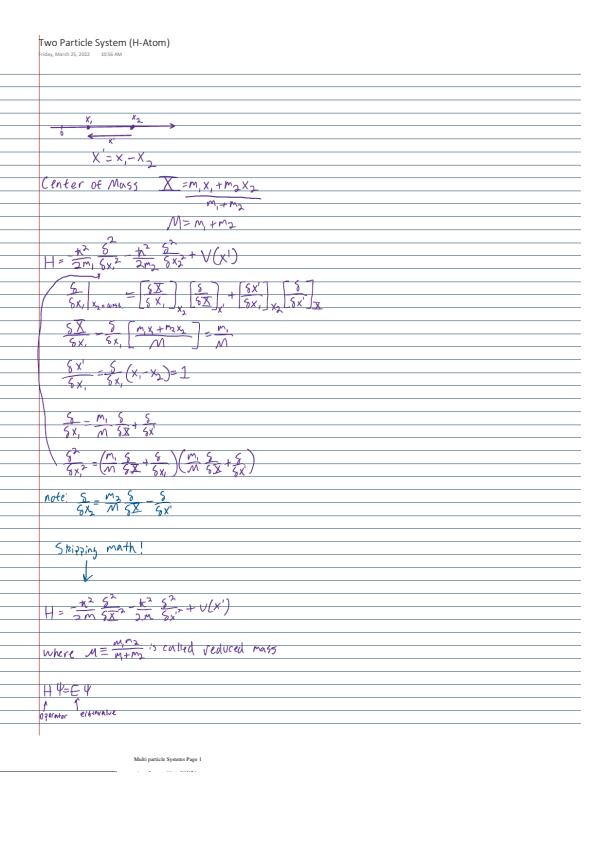 Two Particle System (H-Atom)
Friday, March 25, 2022 10:56 AM
0 x₁ x₂
x'
X' = x₁ - x₂
Center of Mass X̄ = m₁x₁ + m₂x₂ / m₁ + m₂
M = m₁ + m₂
H = -ħ²/2m₁ δ²/δx₁² - ħ²/2m₂ δ²/δx₂² + V(x')
δ/δx₁ |x₂=const = [δX̄/δx₁]x₂ [δ/δX̄]x' + [δx'/δx₁]x₂ [δ/δx']X̄
δX̄/δx₁ = δ/δx₁ [m₁x + m₂x₂ / M] = m₁/M
δx'/δx₁ = δ/δx₁ (x₁ - x₂) = 1
δ/δx₁ = m₁/M δ/δX̄ + δ/δx'
δ²/δx₁² = (m₁/M δ/δX̄ + δ/δx₁)(m₁/M δ/δX̄ + δ/δx')
note: δ/δx₂ = m₂/M δ/δX̄ - δ/δx'
Skipping math!
H = -ħ²/2M δ²/δX̄² - ħ²/2μ δ²/δx'² + V(x')
where μ ≡ m₁m₂/m₁+m₂ is called reduced mass
HΨ = EΨ
operator eigenvalue
Multi particle Systems Page 1